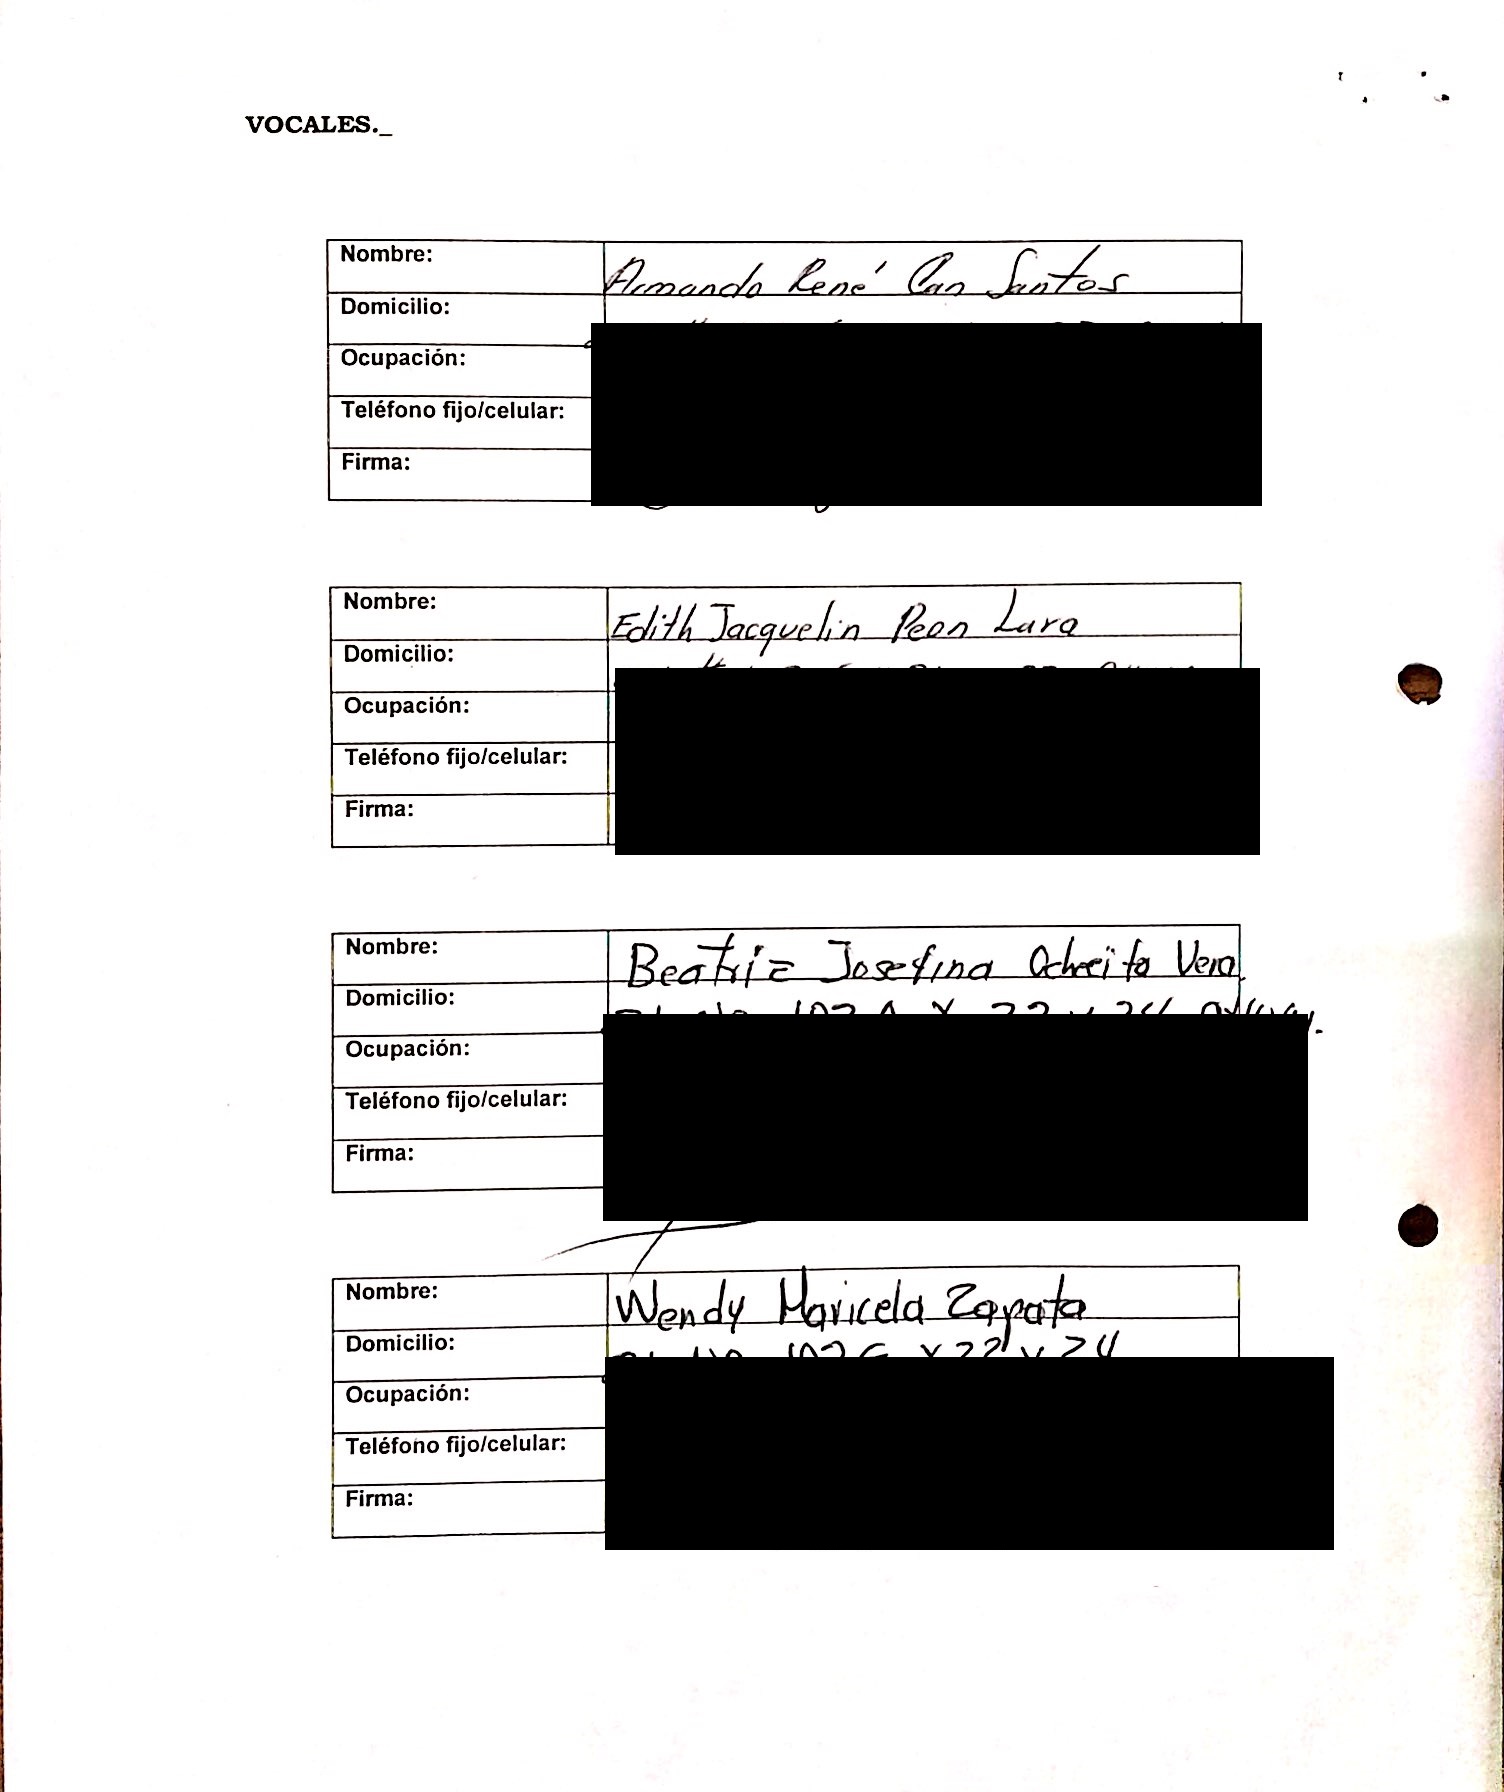 VOCALES._
Nombre: Armando René Can Santos
Domicilio:
Ocupación:
Teléfono fijo/celular:
Firma:
Nombre: Edith Jacquelin Peon Lara
Domicilio:
Ocupación:
Teléfono fijo/celular:
Firma:
Nombre: Beatriz Josefina Vera
Domicilio:
Ocupación:
Teléfono fijo/celular:
Firma:
Nombre: Wendy Maricela Zapata
Domicilio:
Ocupación:
Teléfono fijo/celular:
Firma: